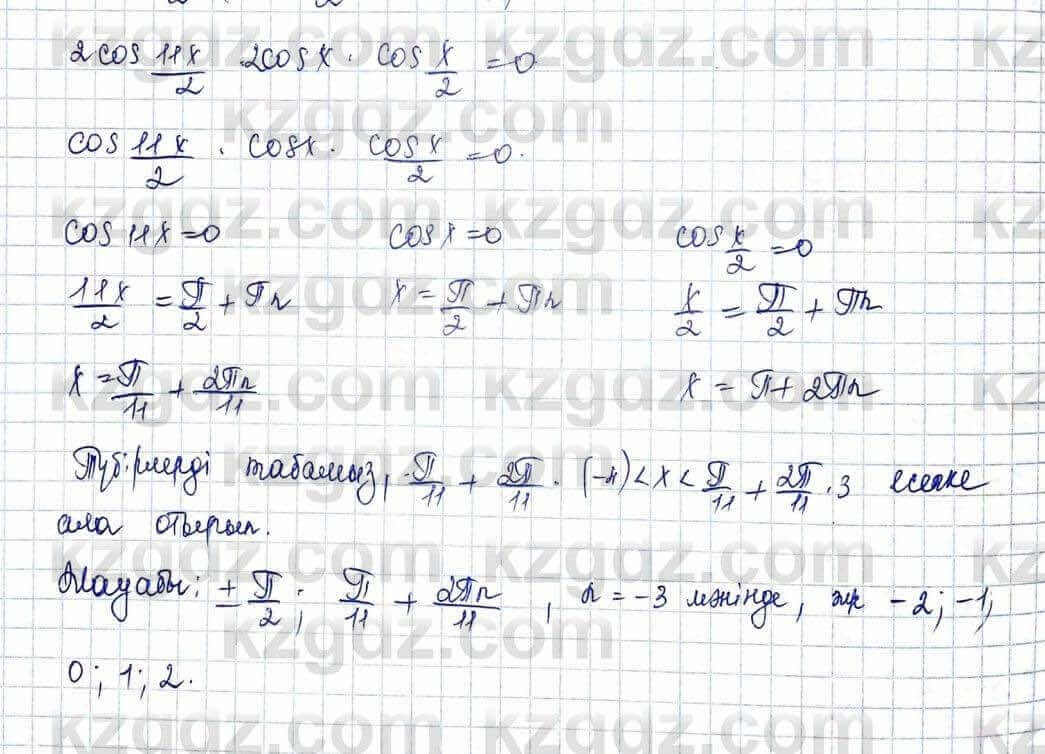 2cos 11x/2 · 2cos x · cos x/2 = 0
cos 11x/2 · cos x · cos x/2 = 0.
cos 11x = 0 cos x = 0 cos x/2 = 0
11x/2 = π/2 + πn x = π/2 + πn x/2 = π/2 + πn
x = π/11 + 2πn/11 x = π + 2πn
Түбірлерді табамыз, -π/11 + 2π/11 · (-4) < x < π/11 + 2π/11 · 3 есепке
ала отырып.
Жауабы: ± π/2; π/11 + 2πn/11, n = -3 мәнінде, -2; -1;
0; 1; 2.
kzgdz.com